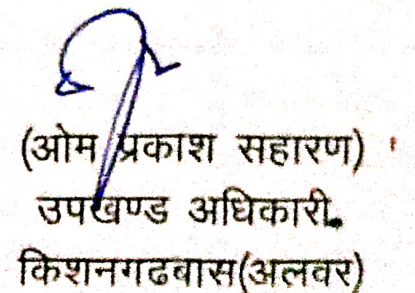 (ओम प्रकाश सहारण)
उपखण्ड अधिकारी.
किशनगढबास(अलवर)